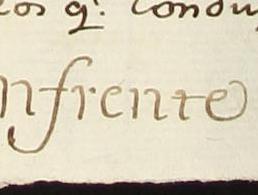 cos q. Condu
nfrente